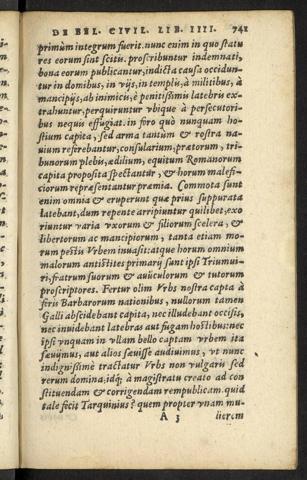 DE BEL. CIVIL. LIB. IIII. 741
primùm integrum fuerit. nunc enim in quo statu
res eorum sint scitis. proscribuntur indemnati,
bona eorum publicantur, indicta causa occidun-
tur in domibus, in vijs, in templis, à militibus, à
mancipijs, ab inimicis, è penitissimis latebris ex-
trahuntur, perquiruntur vbique à persecutori-
bus nequis effugiat. in firo quò nunquam ho-
stium capita, sed arma tantùm & rostra na-
uium referebantur, consularium, prætorum, tri-
bunorum plebis, ædilium, equitum Romanorum
capita proposita spectantur, & horum malefi-
ciorum repræsentantur præmia. Commota sunt
enim omnia & eruperunt quæ prius suppurata
latebant, dum repente arripiuntur quilibet, exo
riuntur varia vxorum & filiorum scelera, &
libertorum ac mancipiorum, tanta etiam mo-
rum pestis Vrbem inuasit: atque horum omnium
malorum antistites primarij sunt ipsi Triumui-
ri, fratrum suorum & auūculorum & tutorum
proscriptores. Fertur olim Vrbs nostra capta à
feris Barbarorum nationibus, nullorum tamen
Galli abscidebant capita, nec illudebant occisis,
nec inuidebant latebras aut fugam hostibus: nec
ipsi vnquam in vllam bello captam vrbem ita
sæuijmus, aut alios sæuisse audiuimus, vt nunc
indignissimè tractatur Vrbs non vulgaris sed
rerum domina: idq; à magistratu creato ad con
stituendam & corrigendam rempublicam. quid
tale fecit Tarquinius? quem propter vnam mu-
A 3 lierem